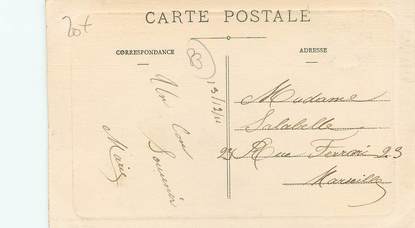 20+
CARTE POSTALE
CORRESPONDANCE
ADRESSE
13/12/11
Un
Souvenir
Marie
Madame
Salabelle
23 Rue 23
Marseille